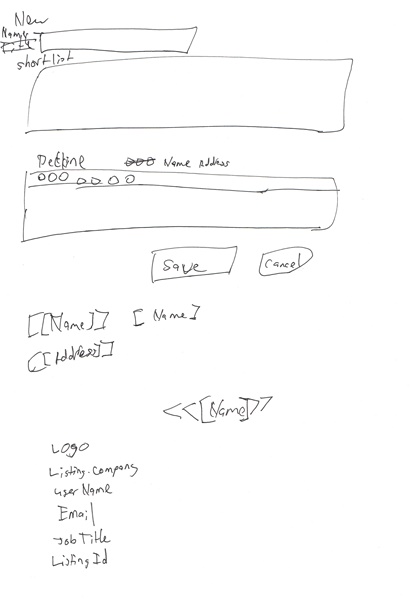 New
Name
shortlist
Decline Name Address
Save Cancel
[[Name]] [Name]
[[Address]]
<<[Name]>>
Logo
Listing.Company
userName
Email
JobTitle
ListingId